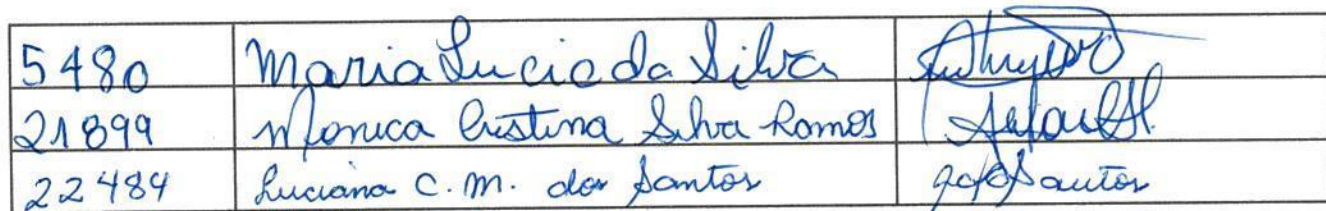 5480 Maria Lucia da Silva
21899 Monica Cristina Silva Ramos
22484 Luciana C. M. dos Santos Santos